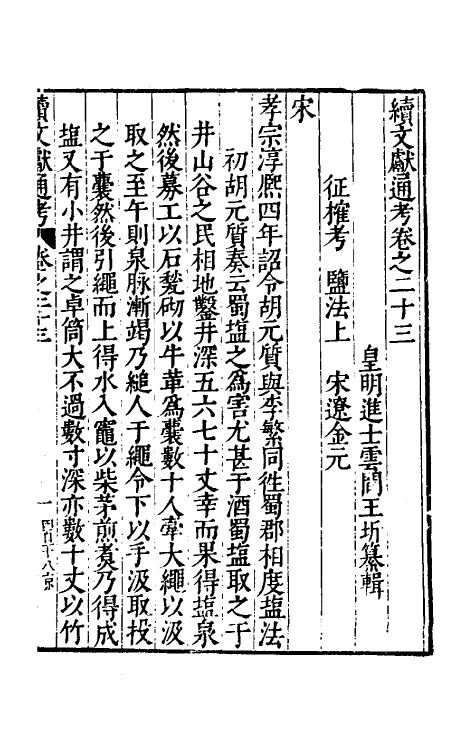 續文獻通考卷之二十三
皇明進士雲間王圻纂輯
征榷考　鹽法上　宋遼金元
宋
孝宗淳熈四年詔令胡元質與李繁同徃蜀郡相度塩法
初胡元質奏云蜀塩之爲害尤甚于酒蜀塩取之于
井山谷之民相地鑿井深五六七十丈幸而果得塩泉
然後募工以石甃砌以牛革爲囊數十人牽大繩以汲
取之至午則泉脉漸竭乃縋人于繩令下以手汲取投
之于囊然後引繩而上得水入竈以柴茅煎煑乃得成
塩又有小井謂之卓筒大不過數寸深亦數十丈以竹
續文獻通考　卷之二十三　一